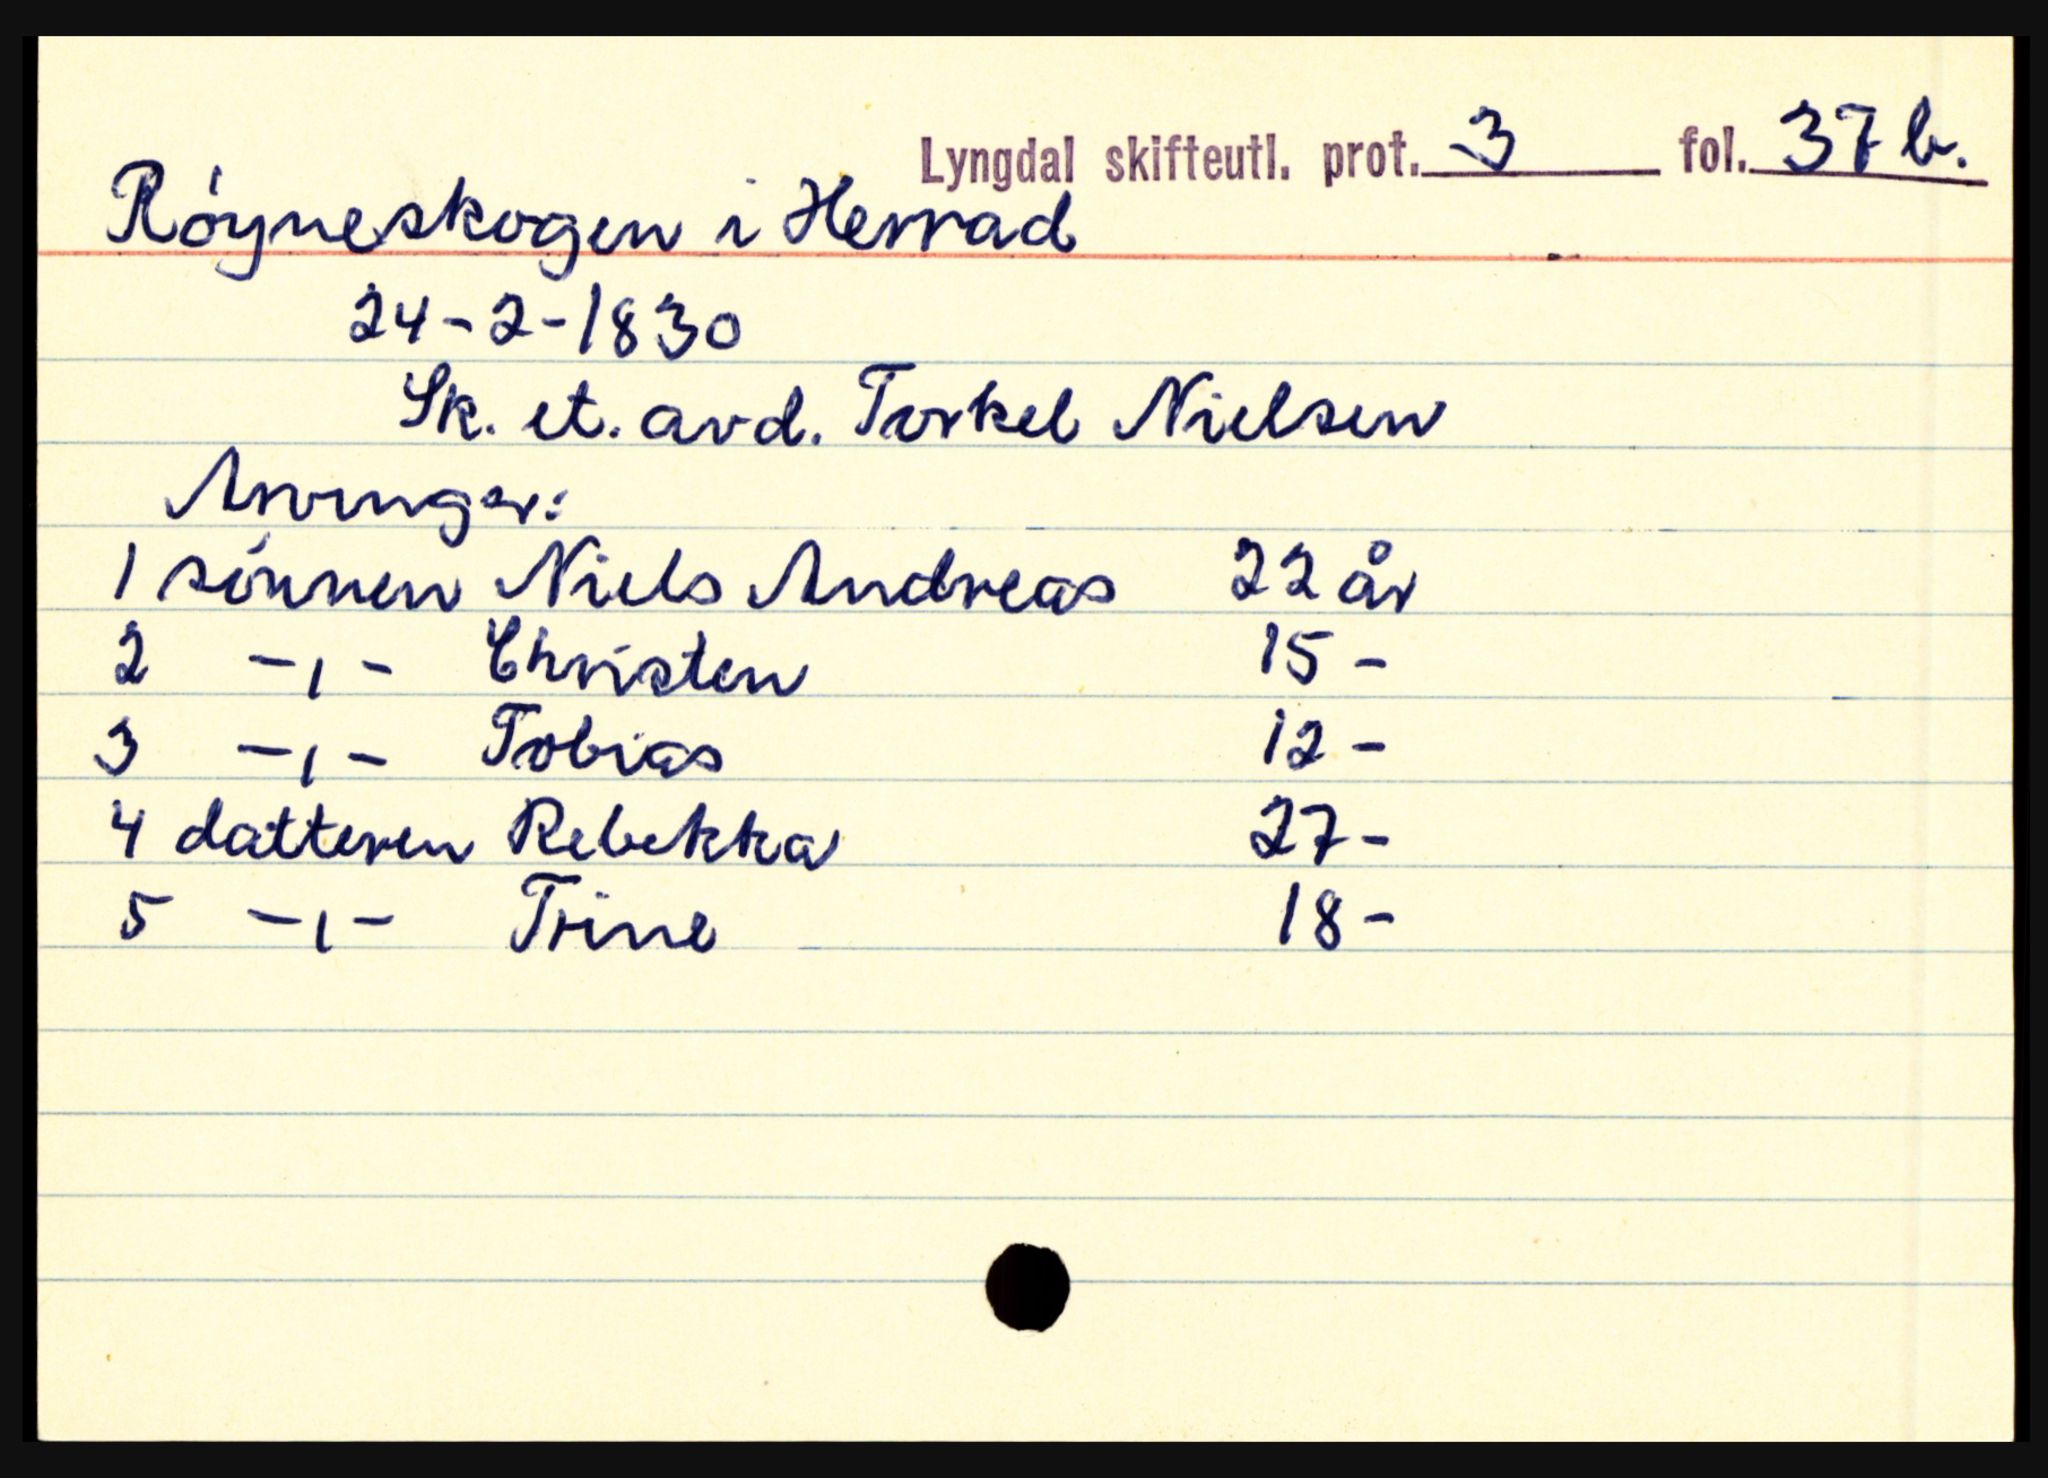 Lyngdal skifteutl. prot. 3 fol. 37 b.
Røyneskogen i Herrad
24-2-1830
Sk. et. avd. Torkel Nielsen
Arvinger:
1 sønnen Niels Andreas 22 år
2 -,- Christen 15 -
3 -,- Tobias 12 -
4 datteren Rebekka 27 -
5 -,- Trine 18 -